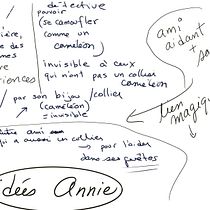 détective
pouvoir
(se camoufler
comme un
caméléon)
des
invisible à ceux
qui n'ont pas un collier
caméléon
par son bijou / collier
(caméléon)
= invisible
ami
aidant
+
lien
magique
ami
qui a aussi un collier
→ pour l'aider
dans ses quêtes
idées Annie